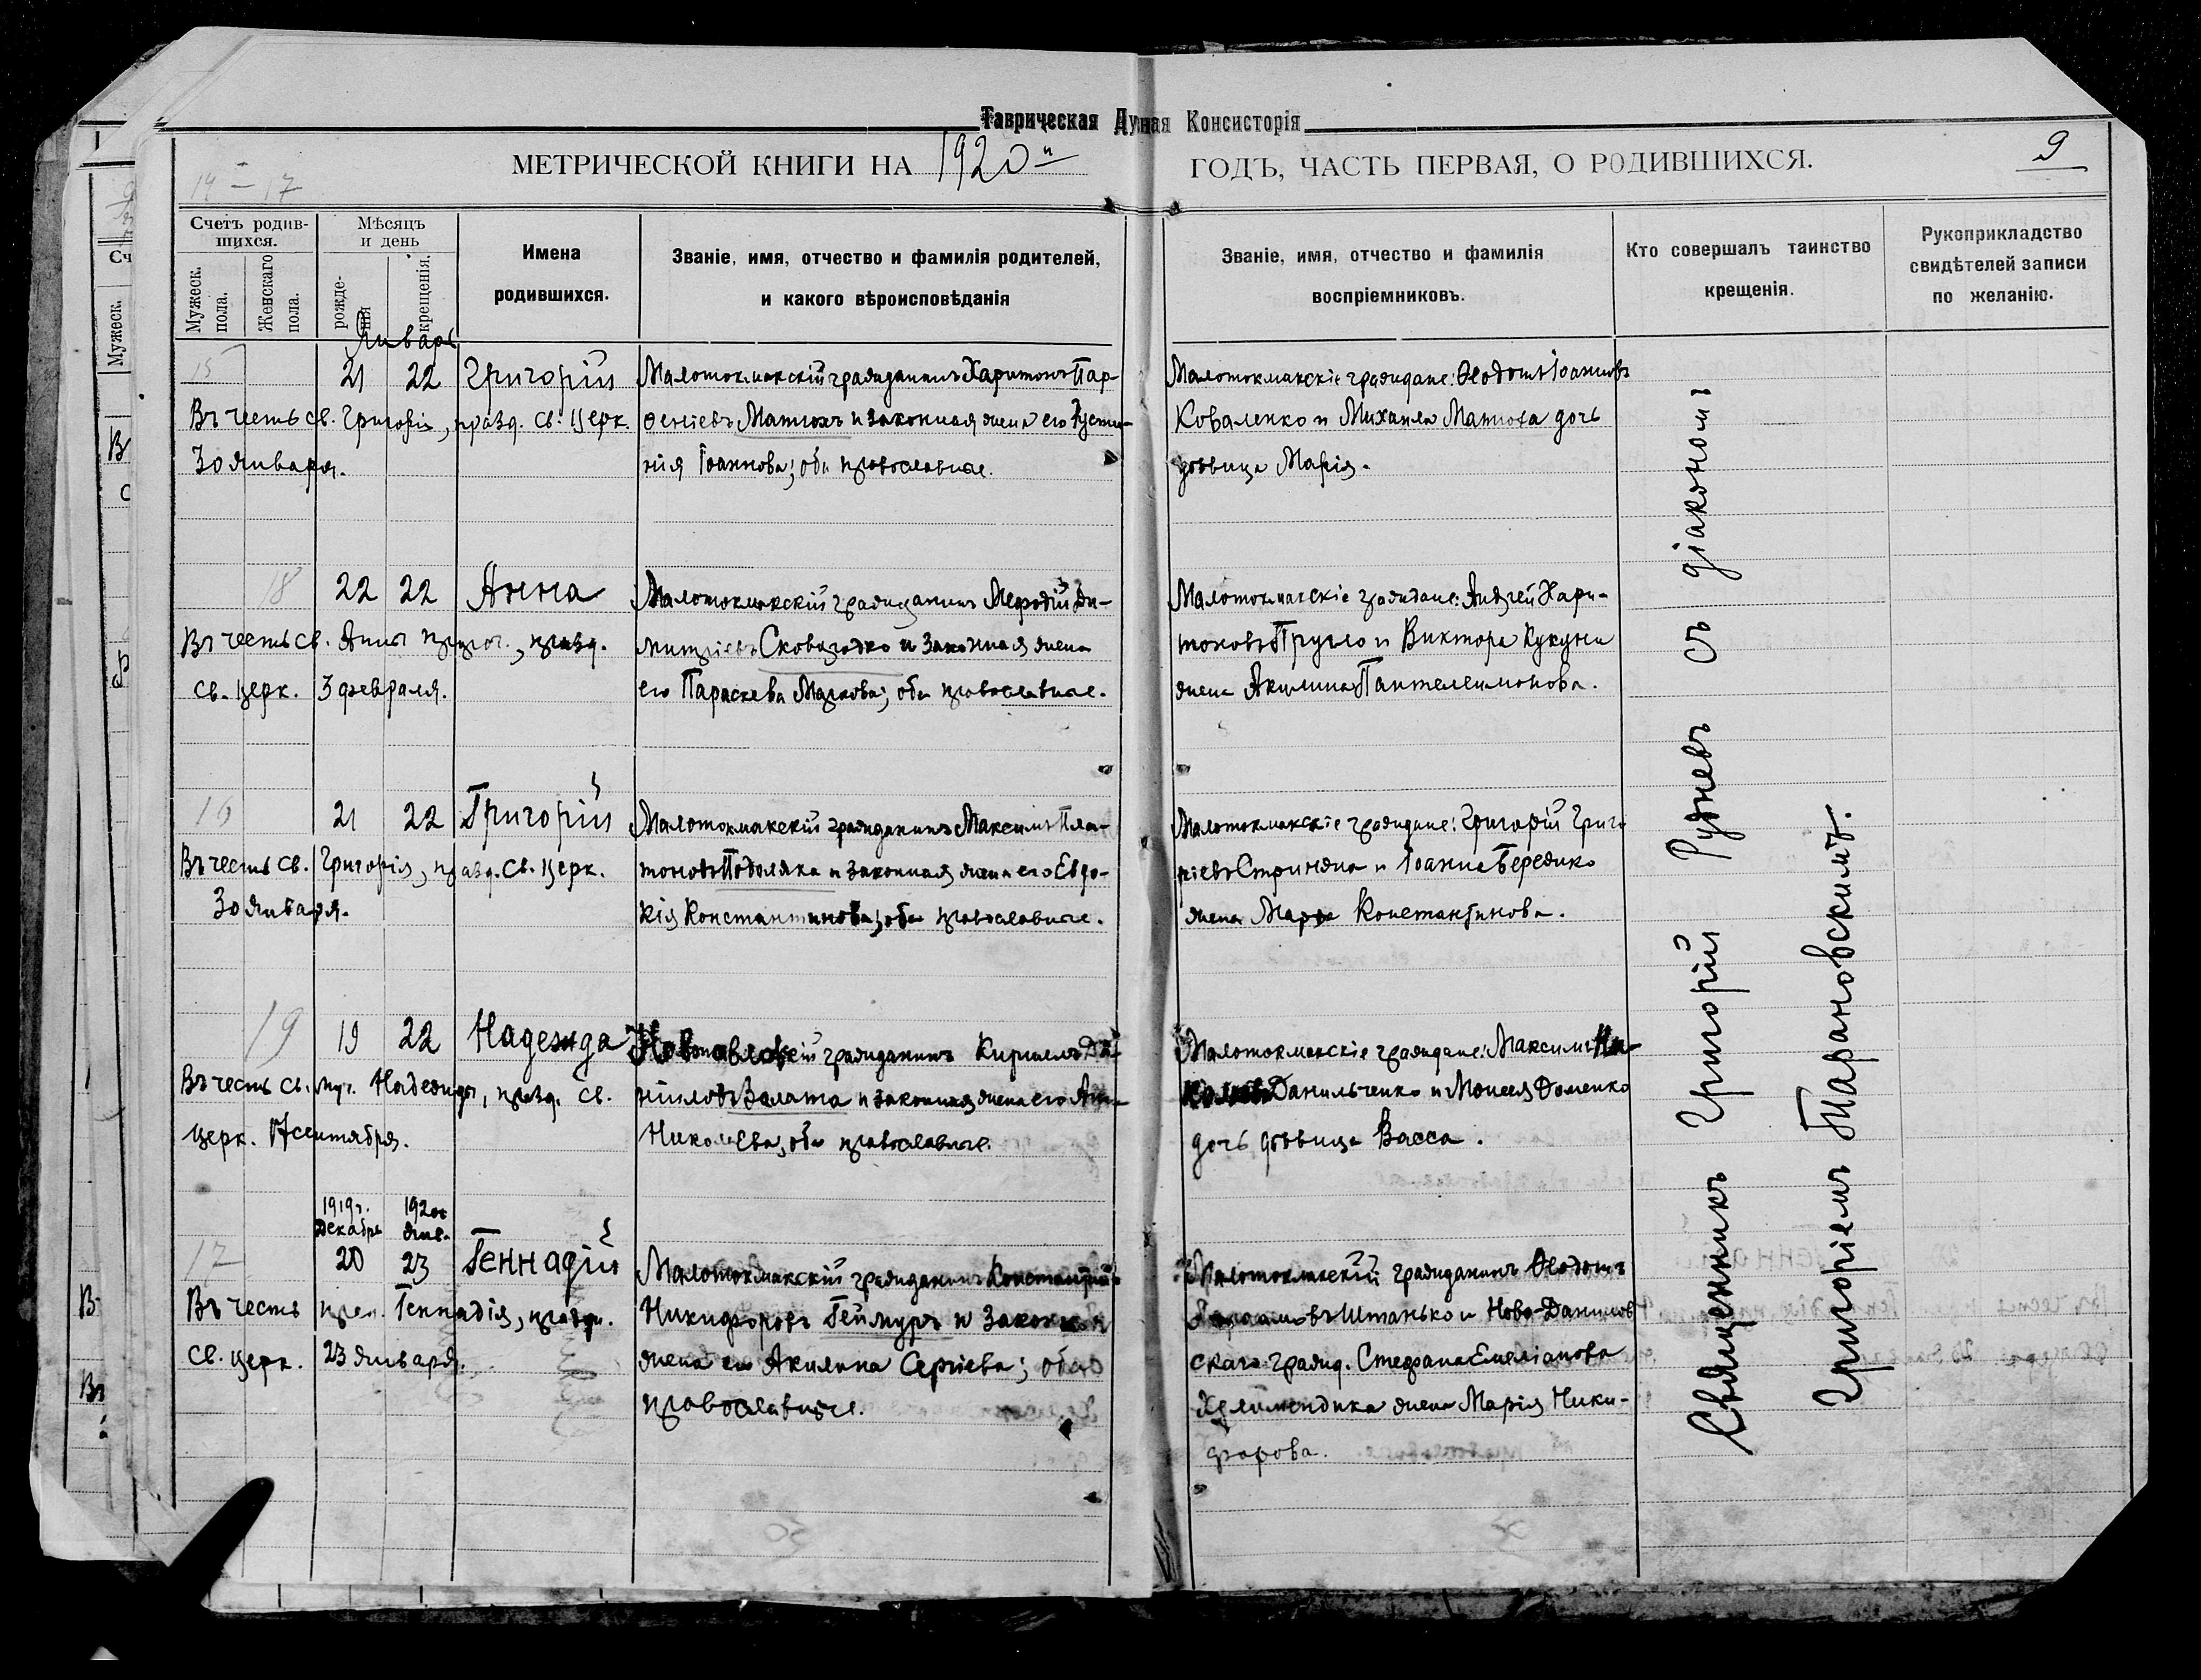 Таврическая Духная Консисторія
МЕТРИЧЕСКОЙ КНИГИ НА 1920й ГОДЪ, ЧАСТЬ ПЕРВАЯ, О РОДИВШИХСЯ.
9
14 – 17
Счетъ родив-
шихся.
Мужеск. пола.
Женскаго пола.
Мѣсяцъ
и день
рожде-
нія
крещенія.
Имена
родившихся.
Званіе, имя, отчество и фамилія родителей,
и какого вѣроисповѣданія
Званіе, имя, отчество и фамилія
воспріемниковъ.
Кто совершалъ таинство
крещенія.
Рукоприкладство
свидѣтелей записи
по желанію.
Январь
15 21 22 Григорій
Въ честь св. Григорія, празд. св. Церк.
30 января.
Малотокмакскій гражданинъ Харитонъ Пар-
ѳеніевъ Матюхъ и законная жена его Густи-
нія Іоаннова; оба православные.
Малотокмакскіе граждане: Ѳеодотъ Іоанновъ
Коваленко и Михаила Матюха дочь
дѣвица Марія.
18 22 22 Анна
Въ честь св. Анны прор., празд.
св. церк. 3 февраля.
Малотокмакскій гражданинъ Мефодій Ди-
митріевъ Сковородко и законная жена
его Параскева Маркова; оба православные.
Малотокмакскіе граждане: Андрей Хари-
тоновъ Пругло и Виктора Кукуни
жена Акилина Пантелеимонова.
16 21 22 Григорій
Въ честь св. Григорія, празд. св. Церк.
30 января.
Малотокмакскій гражданинъ Максимъ Пла-
тоновъ Подоляка и законная жена его Евдо-
кія Константинова; оба православные.
Малотокмакскіе граждане: Григорій Григо
ріевъ Стринжа и Іоанна Бередико
жена Марѳа Константинова.
19 19 22 Надежда
Въ честь св. муч. Надежды, празд. св.
церк. 17 сентября.
гражданинъ Кириллъ Да-
ніиловъ Волата и законная жена его
Николаева, оба православные.
Малотокмакскіе граждане: Максимъ
Данильченко и Моисея Доменко
дочь дѣвица Васса.
1919г. 1920г
Декабрь янв.
17 20 23 Геннадій
Въ честь преп. Геннадія, празд.
св. церк. 23 января.
Малотокмакскій гражданинъ Константинъ
Никифоровъ Геймуръ и законная
жена его Акилина Сергіева; оба
православные.
Малотокмакскій гражданинъ Ѳеодотъ
Штанько и Ново-Данилов
скаго гражд. Стефана Емеліанова
жена Марія Ники-
форова.
Священникъ Григорій Рудневъ съ діакономъ
Григоріемъ Тарановскимъ.